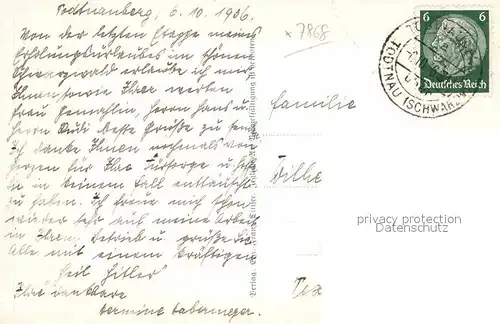 Todtnauberg, 6.10.1936.
Von der letzten Etappe meines
Erholungsurlaubes im schönen
Schwarzwald erlaube ich mir
Ihnen, sowie Ihrer werten
Frau Gemahlin, Herrn Hans u.
Herrn Rudi beste Grüße zu senden.
Ich danke Ihnen nochmals von
Herzen für Ihre Fürsorge u. hoffe
in keinem Fall enttäuscht
zu haben. Ich freue mich schon
wieder sehr auf meine Arbeit
in Ihrem Betrieb u. grüße Sie
Alle mit einem kräftigen
Heil Hitler
Ihre dankbare
Hermine
x 7868
Familie
6 6
Deutsches Reich
TODTNAU (SCHWARZW
privacy protection
Datenschutz